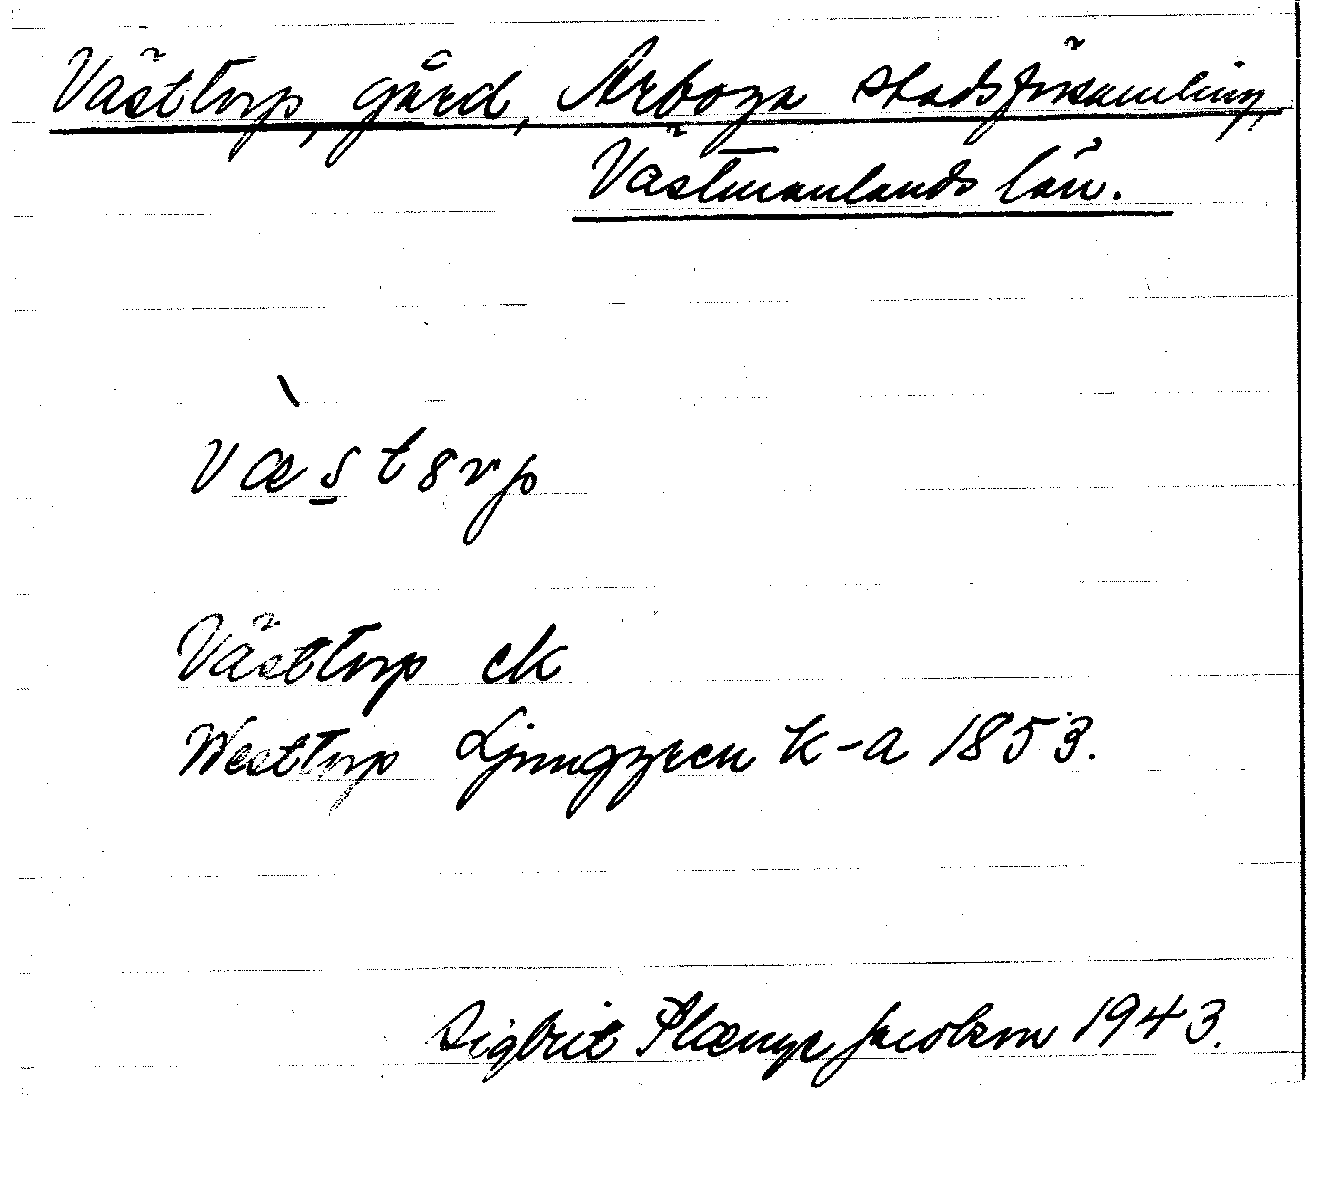 Västtorp, gård, Arboga stadsförsamling,
Västmanlands län.
v æ̀ s̲ t 8 r p
Västtorp ek
Westtorp Ljunggren k-a 1853.
Sigbrit Plænge Jacobson 1943.